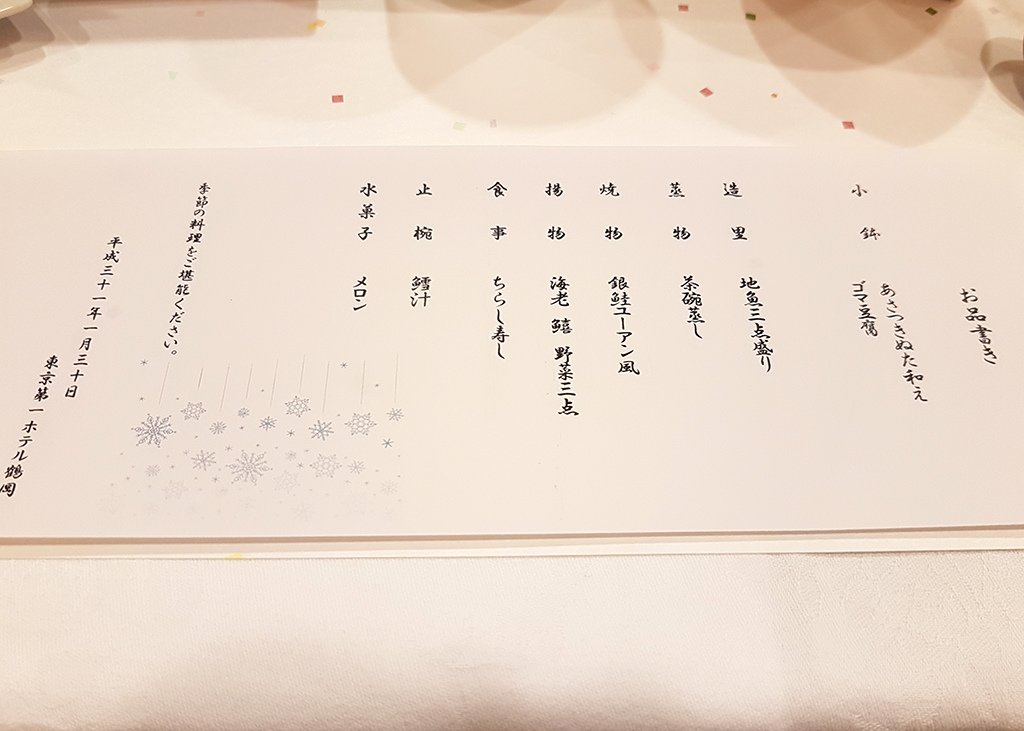 お品書き
小鉢 あさつきぬた和え
ゴマ豆腐
造里 地魚三点盛り
蒸物 茶碗蒸し
焼物 銀鮭ユーアン風
揚物 海老 鱚 野菜三点
食事 ちらし寿し
止椀 鱈汁
水菓子 メロン
季節の料理をご堪能ください。
平成三十一年一月三十日
東京第一ホテル鶴岡